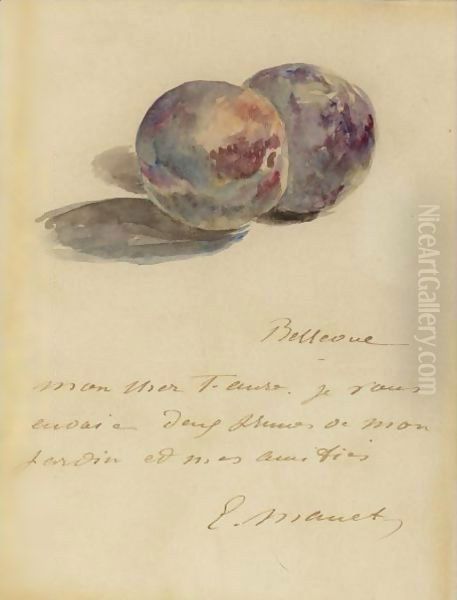 Bellevue
mon cher je vous
envoie deux prunes de mon
jardin et mes amitiés
E. Manet
NiceArtGallery.com